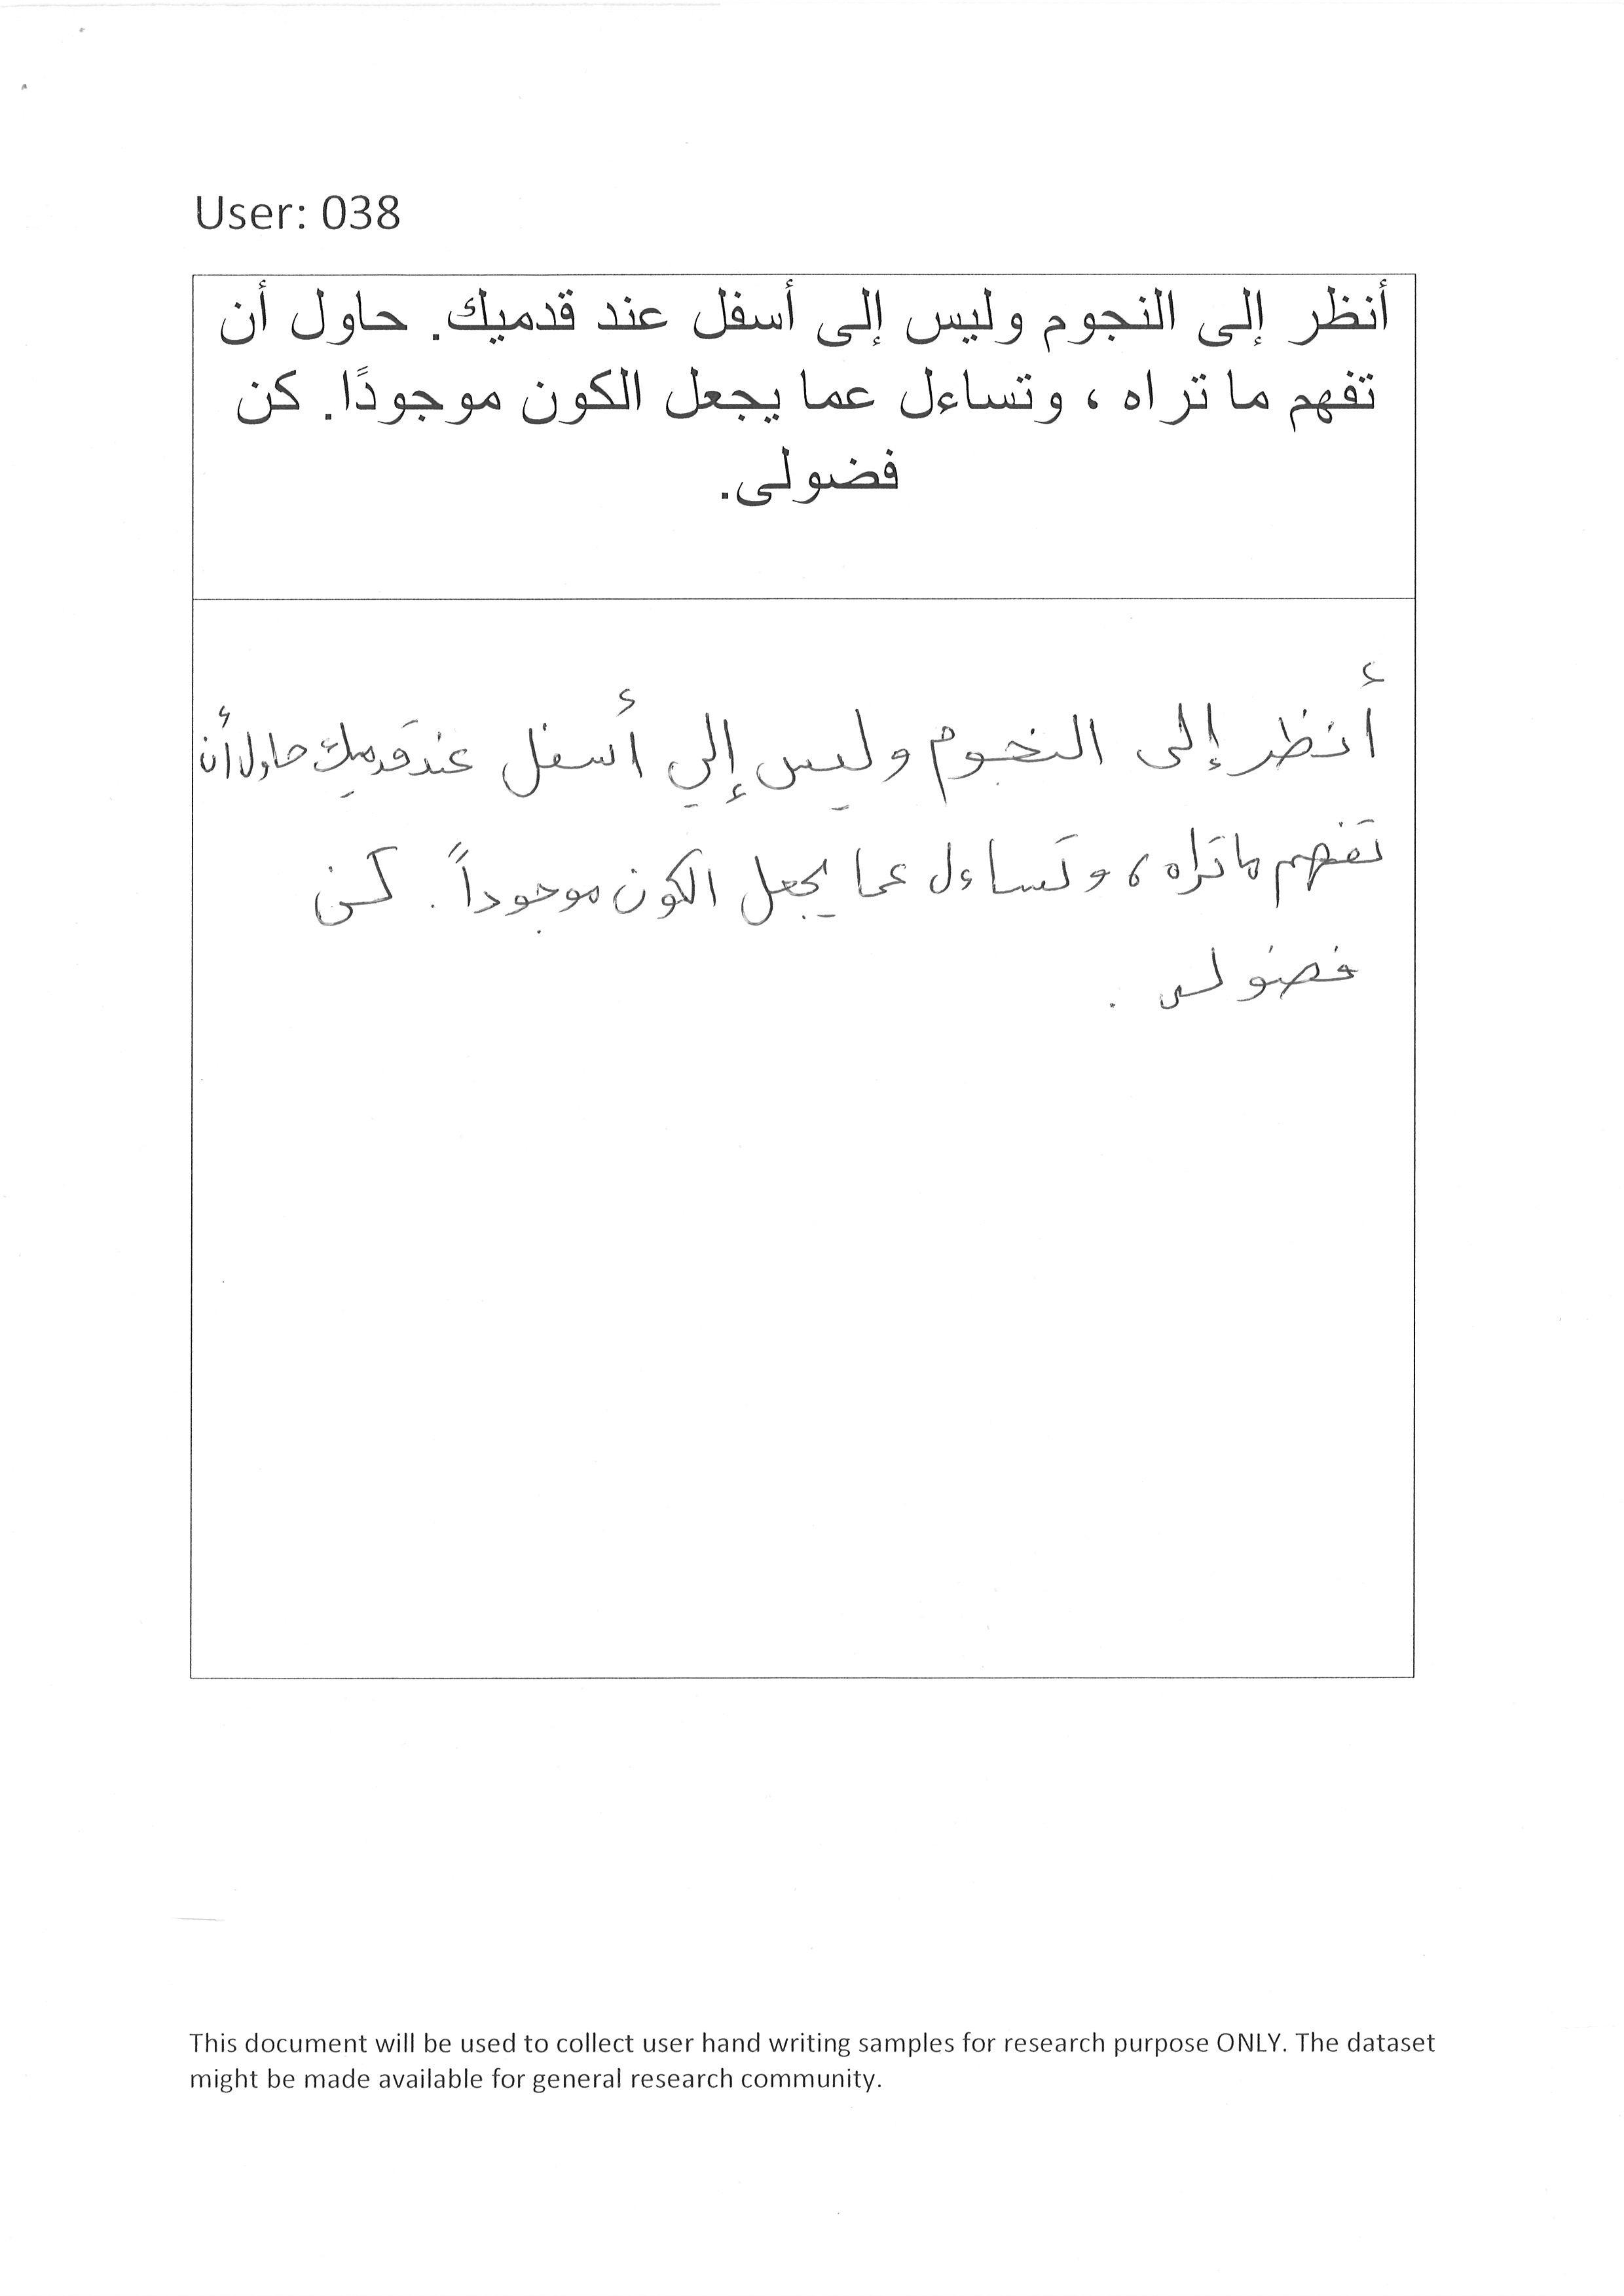 User: 038
أنظر إلى النجوم وليس إلى أسفل عند قدميك. حاول أن
تفهم ما تراه ، وتساءل عما يجعل الكون موجودًا. كن
فضولى.
أنظر إلى النجوم وليس إلي أسفل عند قدميك حاول أن
تفهم ما تراه ، وتساءل عما يجعل الكون موجوداً . كن
فضولى .
This document will be used to collect user hand writing samples for research purpose ONLY. The dataset
might be made available for general research community.